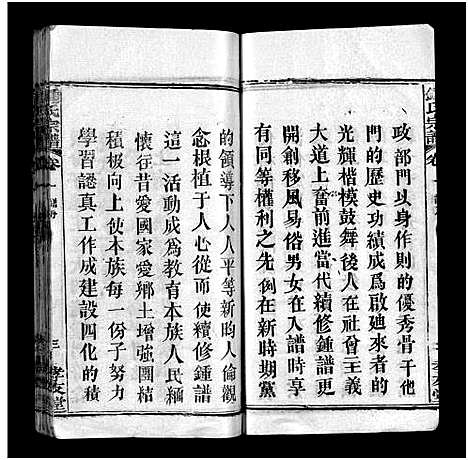 政部門以身作則的優秀骨干他
門的歷史功績成為啟廸來者的
光輝楷模鼓舞後人在社會王義
大道上奮前進當代續修鍾譜更
開創移風易俗男女在入譜時享
有同等權利之先例在新時期黨
鍾氏宗譜
卷一
的領導下人人平等新昀人倫觀
念根植于人心從而使續修鍾譜
這一活動成為教育本族人民緬
懷往昔愛國家愛鄉土增強團結
積极向上使本族每一份子努力
學習認真工作成建設四化的積
鍾氏宗譜
卷一
三
孝友堂